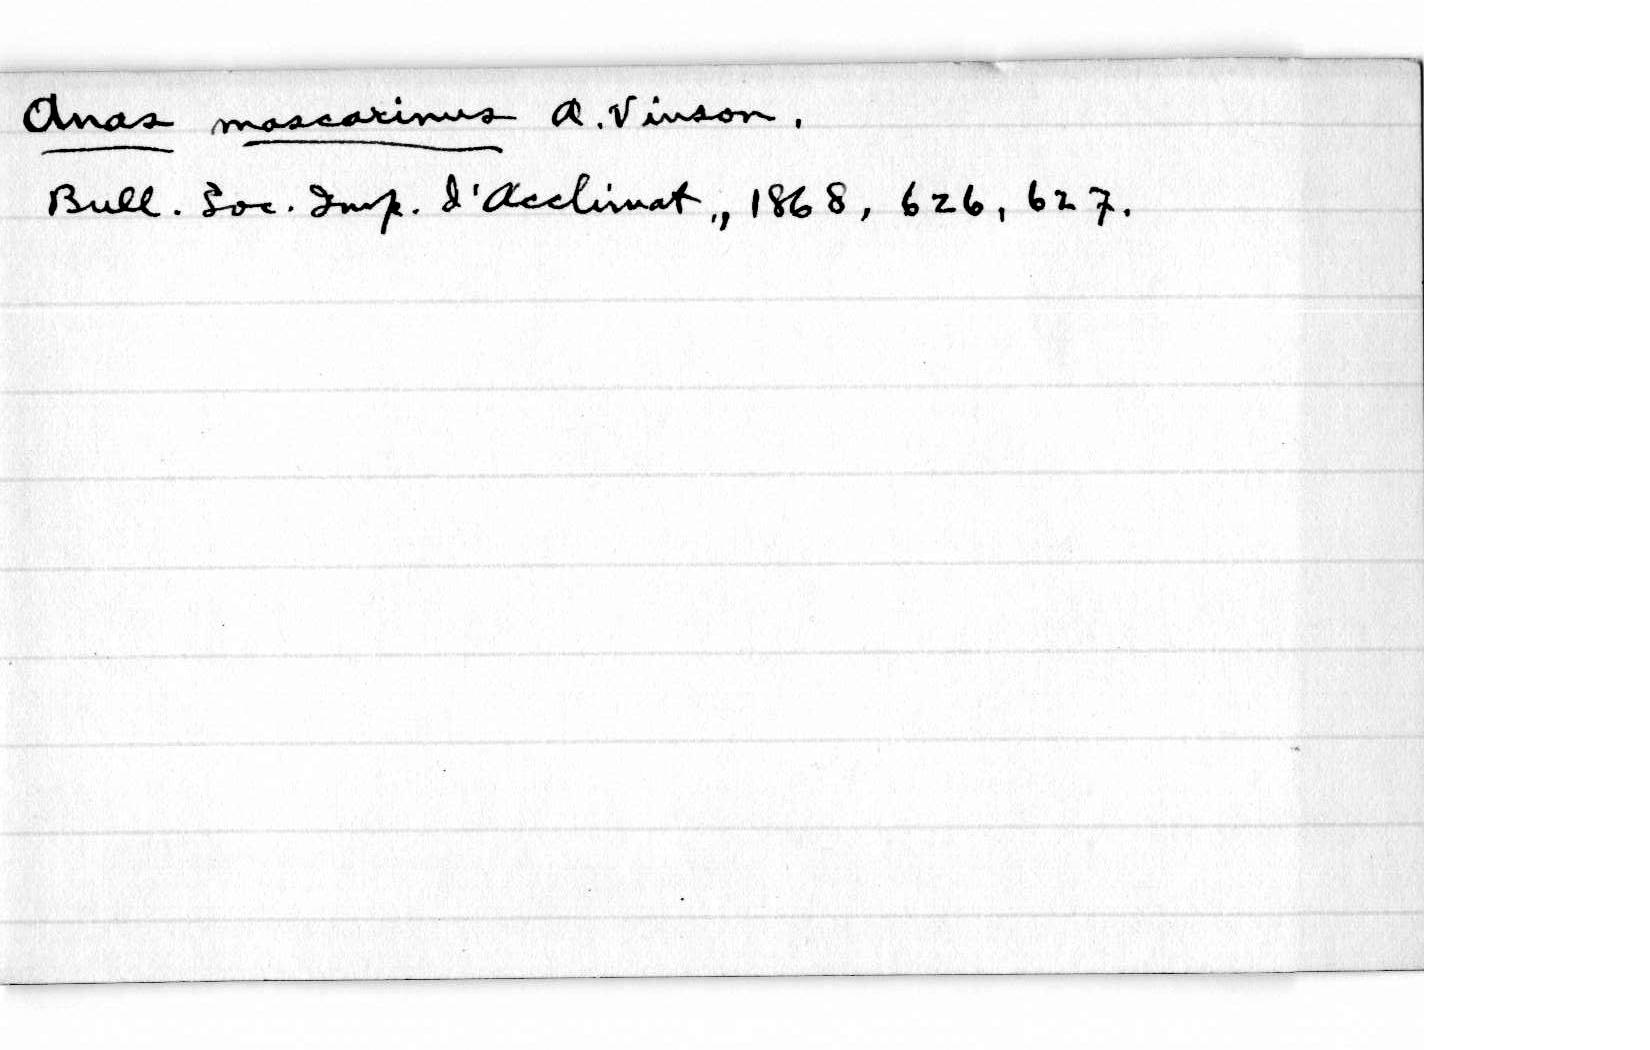 Anas mascarinus A. Vinson.
Bull. Soc. Imp. d'Acclimat., 1868, 626, 627.